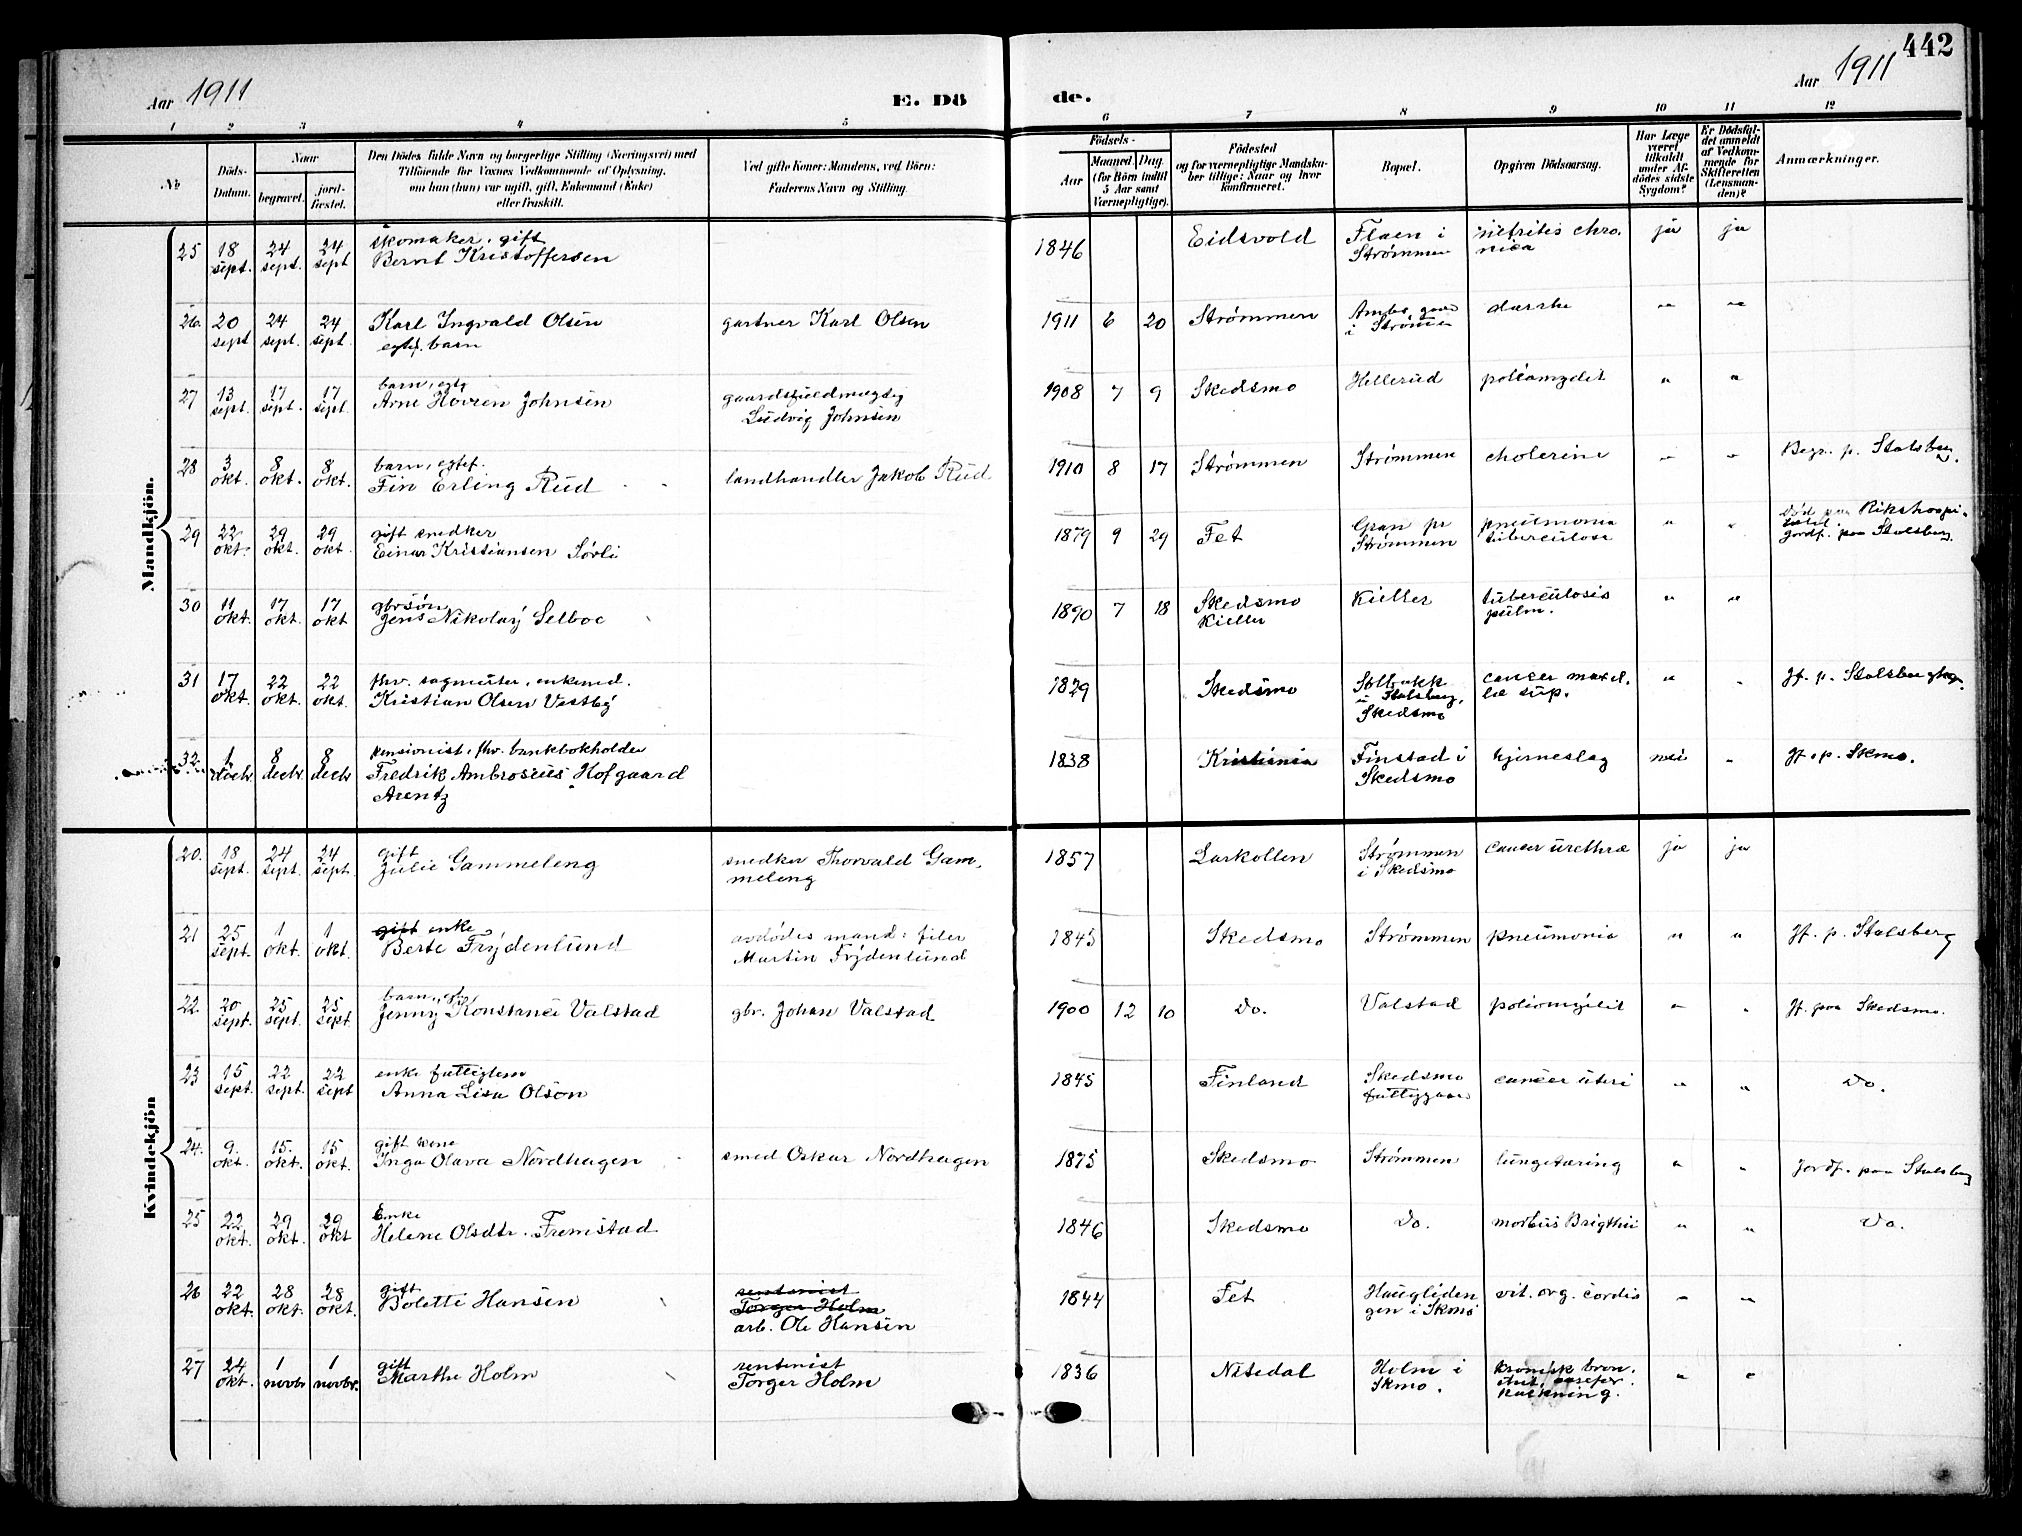 442
Aar 1911 E. Dö de. Aar 1911
1 2 3 4 5 6 7 8 9 10 11 12
No Döds-Datum. Naar begravet. jord-fæstet. Den Dödes fulde Navn og borgerlige Stilling (Næringsvei) med Tilföiende for Voxnes Vedkommende af Oplysning, om han (hun) var ugift, gift, Enkemand (Enke) eller fraskilt. Ved gifte Koner: Mandens, ved Börn: Faderens Navn og Stilling. Födsels- Aar Maaned Dag. (for Börn indtil 5 Aar samt Værnepligtige). Födested og for værnepligtige Mandskaber tillige: Naar og hvor konfirmeret. Bopæl. Opgiven Dödsaarsag. Har Læge været tilkaldt under Afdödes sidste Sygdom? Er Dødsfaldet anmeldt af Vedkommende for Skifteretten (Lensmanden)? Anmærkninger.
Mandkjön.
25 18 sept. 24 sept. 24 sept skomaker, gift Bernt Kristoffersen 1846 Eidsvold Flaen i Strømmen nefritis chronica ja ja
26. 20 sept 24 sept. 24 sept. Karl Ingvald Olsen egtef. barn gartner Karl Olsen 1911 6 20 Strømmen i Strømmen " "
27 13 sept. 17 sept. 17 sept. barn, egte Arne Hovren Johnsen gaardsfuldmægtig Ludvig Johnsen 1908 7 9 Skedsmo Hellerud " "
28 3 okt. 8 okt. 8 okt. barn, egtef. Fin Erling Rud landhandler Jakob Rud 1910 8 17 Strømmen Strømmen cholerine " " Begr. p. Stalsberg.
29 22 okt. 29 okt. 29 okt. gift snedker Einar Kristiansen Sørli 1879 9 29 Fet Gran pr Strømmen pneumonia tuberculosa " " Død paa Rikshospitalet. Jordf. paa Stalsberg.
30 11 okt. 17 okt. 17 okt gbrsøn Jens Nikolay Selboe 1890 7 18 Skedsmo Kieller Kieller tuberculosis pulm. " "
31 17 okt. 22 okt. 22 okt. fhv. sagmester, enkemd. Kristian Olsen Vestby 1829 Skedsmo Solbakk i Stalsberg, Skedsmo cancer maxillæ sup. " " Jf. p. Stalsberg
32. 1 decbr 8 decbr 8 decbr pensionist, fhv. bankbokholder Fredrik Ambrosius Hofgaard Arentz 1838 Kristiania Finstad i Skedsmo hjerneslag nei " Jf. p. Skmo.
Kvindekjön
20. 18 sept. 24 sept. 24 sept. gift Julie Gammeleng snedker Thorvald Gammeleng 1857 Larkollen Strømmen i Skedsmo cancer urethræ ja ja
21 25 sept. 1 okt. 1 okt. gift enke Berte Frydenlund avdødes mand: filer Martin Frydenlund 1845 Skedsmo Strømmen pneumonia " " Jf. p. Stalsberg
22. 20 sept. 25 sept. 25 sept. barn, egte Jenny Konstance Valstad gbr. Johan Valstad 1900 12 10 Do. Valstad poliomyelit " " Jf. paa Skedsmo.
23 15 sept. 22 sept. 22 sept enke fattiglem Anna Lisa Olson 1845 Finland Skedsmo fattiggaard cancer uteri " " Do.
24. 9. okt. 15. okt. 15 okt. gift kone Inga Olava Nordhagen smed Oskar Nordhagen 1875 Skedsmo Strømmen lungetæring " " Jordf. paa Stalsberg
25 22 okt. 29 okt. 29 okt Enke Helene Olsdtr. Fremstad 1846 Skedsmo Do. morbus Brigthii " " Do.
26 22 okt. 28 okt. 28 okt. gift Bolette Hansen rentenist Torger Holm arb. Ole Hansen 1844 Fet Hauglidengen i Skmo vit. org. cordis " "
27 24 okt. 1 novbr 1 novbr. gift Marthe Holm rentenist Torger Holm 1836 Nitedal Holm i Skmo. kronisk bronchit, " "